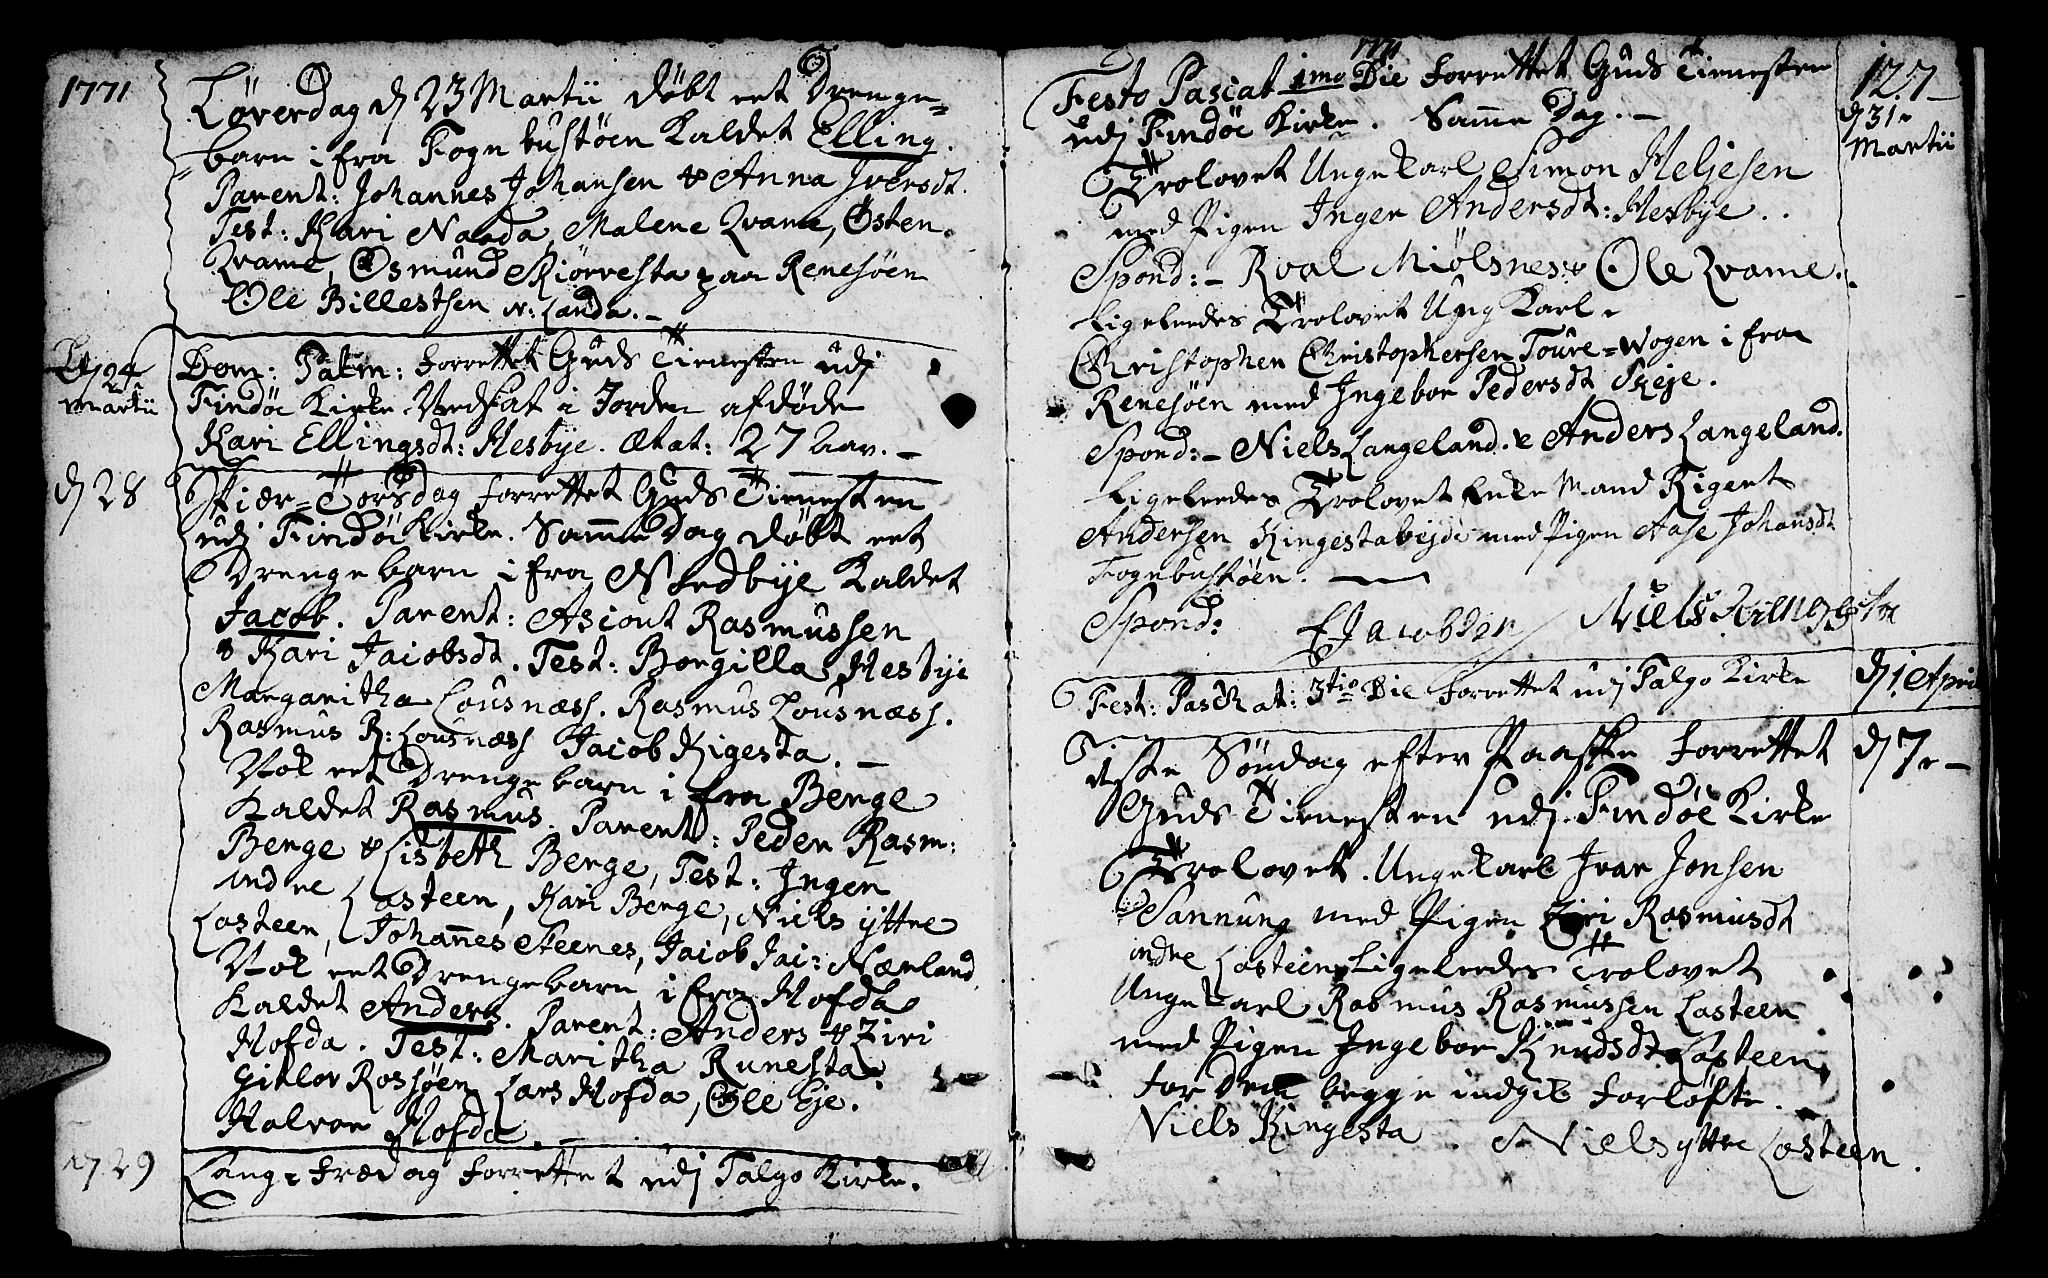 1771
Löverdag d 23 Martii döbt eet Drenge=
=barn i fra Fognbustöen Kaldet Elling.
Parent: Johannes Johansen & Anna Iversdt.
Test: Kari Narda, Malene Qvame, Østen
Qvame, Osmund Skiörvesta paa Renesöen
Ole Billestsen N: Landa. –
d 24 Martii
Dom: Palm: forrettet Guds Tienesten udj
Findöe Kirke. Vedkat i Jorden afdöde
Kari Ellingsdt: Hesbye. Ætat: 27 aar. –
d 28
Skiær=Torsdag forrettet Guds Tienesten
udj Findöe Kirke. Samme Dag döbt eet
Drengebarn i fra Nordbye Kaldet
Jacob. Parent: Asiout Rasmussen
& Kari Jacobsdt. Test: Borgilla Hesbye
Margaritha Lousnæss. Rasmus Lousnæss.
Rasmus R: Lousnæss Jacob Kigesta. –
Nok eet Drengebarn i fra Berge
Kaldet Rasmus. Parent: Peder Rasm:
Berge & Lisbeth Berge, Test: Inger
indre Lasteen, Kari Berge, Niels yttre
Lasteen, Johannes Steenes, Jacob Jac: Nærland
Nok eet Drengebarn i fra Hofda
Kaldet Anders. Parent: Anders & Ziri
Hofda. Test: Maritha Runesta
Gitlov Rossöen Lars Hofda, Ole Eje.
Halvor Hofda. –
d 29
Lang=fredag forrettet udj Talgo Kirke.
1771
127
Festo Pascat 1mo Die forrettet Guds Tienesten
udj Findöe Kirke. Samme Dag. –
d 31 Martii
Trolovet Ungekarl Simon Heljesen
med Pigen Inger Andersdt: Hesbye.
Spond: – Roal Miölsnes & Ole Qvame.
Ligeleedes Trolovet Ung Karl
Christopher Christophersen Toure=Wogen i fra
Renesöen med Ingebor Pedersdt Skeje.
Spond: – Niels Langeland. & Anders Langeland.
Ligeleedes Trolovet Enke Mand Rigert
Andersen Ringestabejde med Pigen Aase Johansdt
Fognbustöen. –
Spond: E Jacobsen Niels Ringesta
Fest: Paschat: 3tio Die forrettet udj Talgo Kirke
d 1 April
1ste Söndag efter Paaske forrettet
d 7
Guds Tienesten udj Findöe Kirke
Trolovet. Ungekarl Ivar Jonsen
Sannung med Pigen Ziri Rasmusdt
indre Lasteen Ligeleedes Trolovet
Ungekarl Rasmus Rasmussen Lasteen
med Pigen Ingebor Knudsdt Lasteen,
for dem begge indgik forlöfte.
Niels Ringesta. Niels yttre Lasteen.